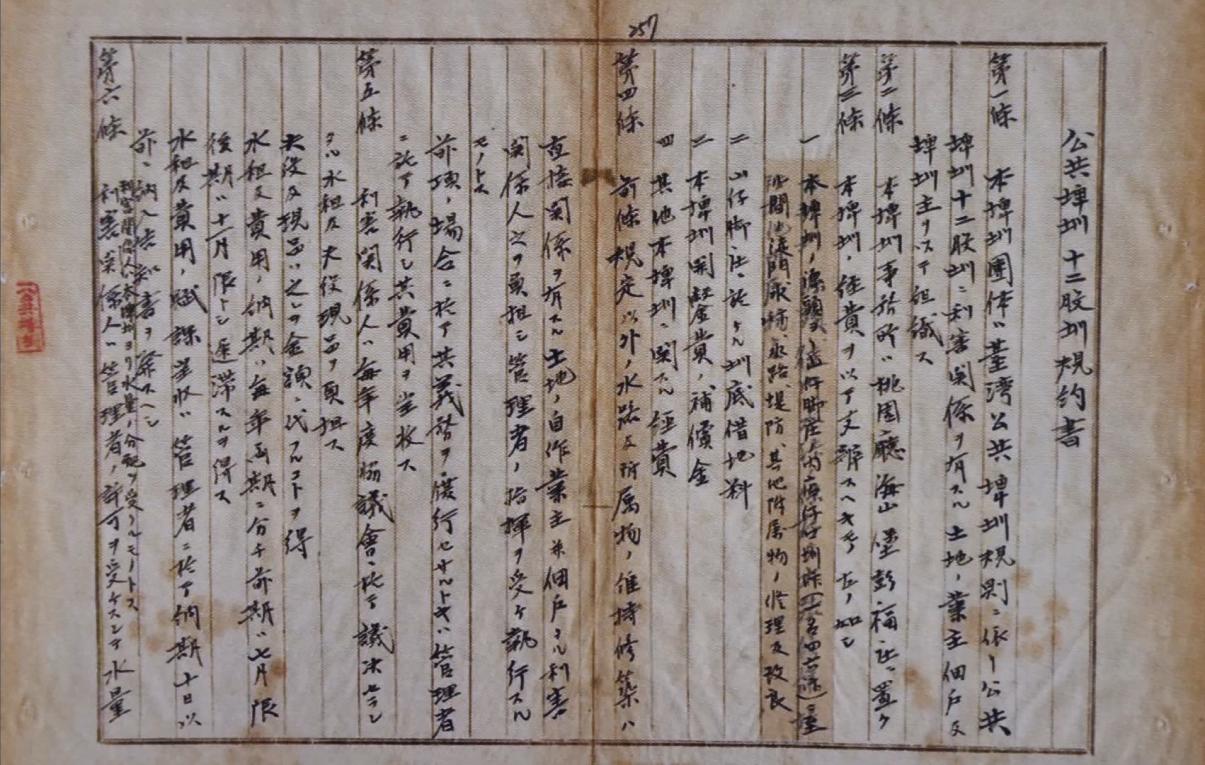 257
公共埤圳十二股圳規約書
第一條 本埤圳團体ハ臺湾公共埤圳規則ニ依リ公共
埤圳十二股圳ニ利害関係ヲ有スル土地ノ業主佃戸及
埤圳主ヲ以テ組織ス
第二條 本埤圳事務所ハ桃園廳海山堡彭福庄ニ置ク
第三條 本埤圳ノ経費ヲ以テ支辨スヘキモノ左ノ如シ
一 本埤圳ノ源頭
水路、堤防、其他附属物ノ修理及改良
二 山仔脚庄ニ於ケル圳底借地料
三 本埤圳開鑿費ノ補償金
四 其他本埤圳ニ関スル経費
第四條 前條規定以外ノ水路及附属物ノ維持修築ハ
直接関係ヲ有スル土地ノ自作業主并佃戸タル利害
関係人之ヲ負担シ管理者ノ指揮ヲ受ケ執行スル
モノトス
前項ノ場合ニ於テ其義務ヲ履行セサルトキハ管理者
ニ於テ執行シ其費用ヲ徴收ス
第五條 利害関係人ハ毎年度協議會ニ於テ議決セラレ
タル水租及夫役現品ヲ負担ス
夫役及現品ハ之ヲ金額ニ代フルコトヲ得
水租及費用ノ納期ハ毎年両期ニ分チ前期ハ七月限
後期ハ十二月限トシ遅滞スルヲ得ス
水租及費用ノ賦課徴收ハ管理者ニ於テ納期十日以
前ニ納入告知書ヲ発スヘシ
利害関係人ハ本埤圳ヨリ水量ノ分配ヲ受クルモノトス
第六條 利害関係人ハ管理者ノ許可ヲ受ケスシテ水量